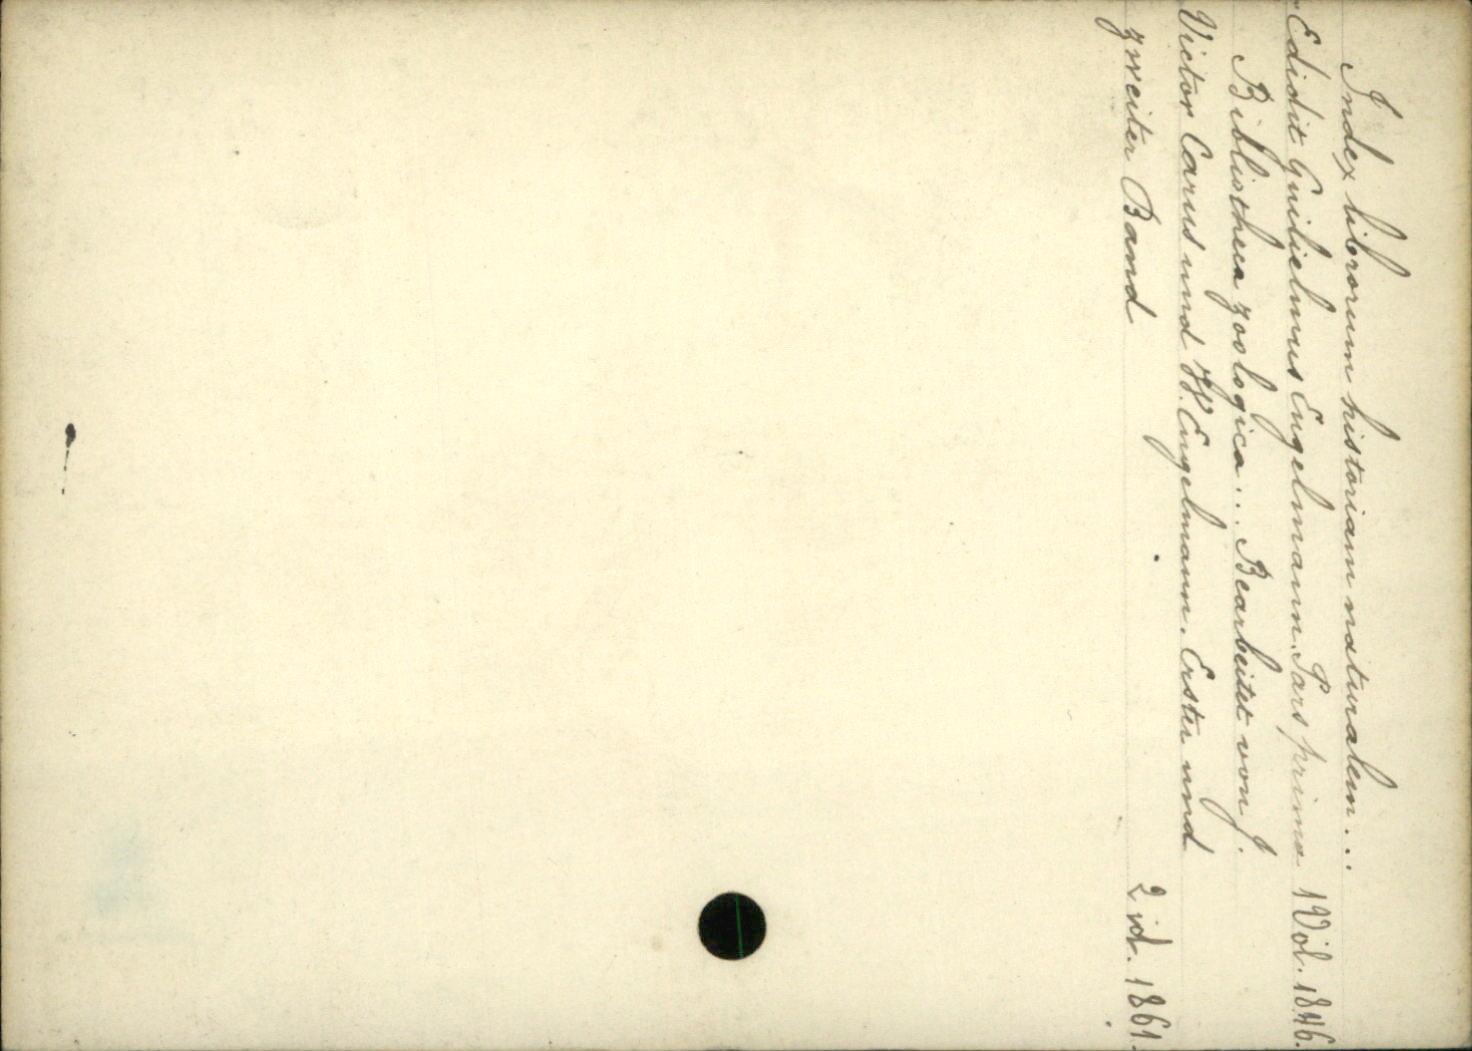 Index librorum historiam naturalem...
Edidit Guilielmus Engelmann. Pars prima 1 Vol. 1846.
Bibliotheca zoologica... Bearbeitet von J.
Victor Carus und W. Engelmann. Erster und
zweiter Band 2 id. 1861.